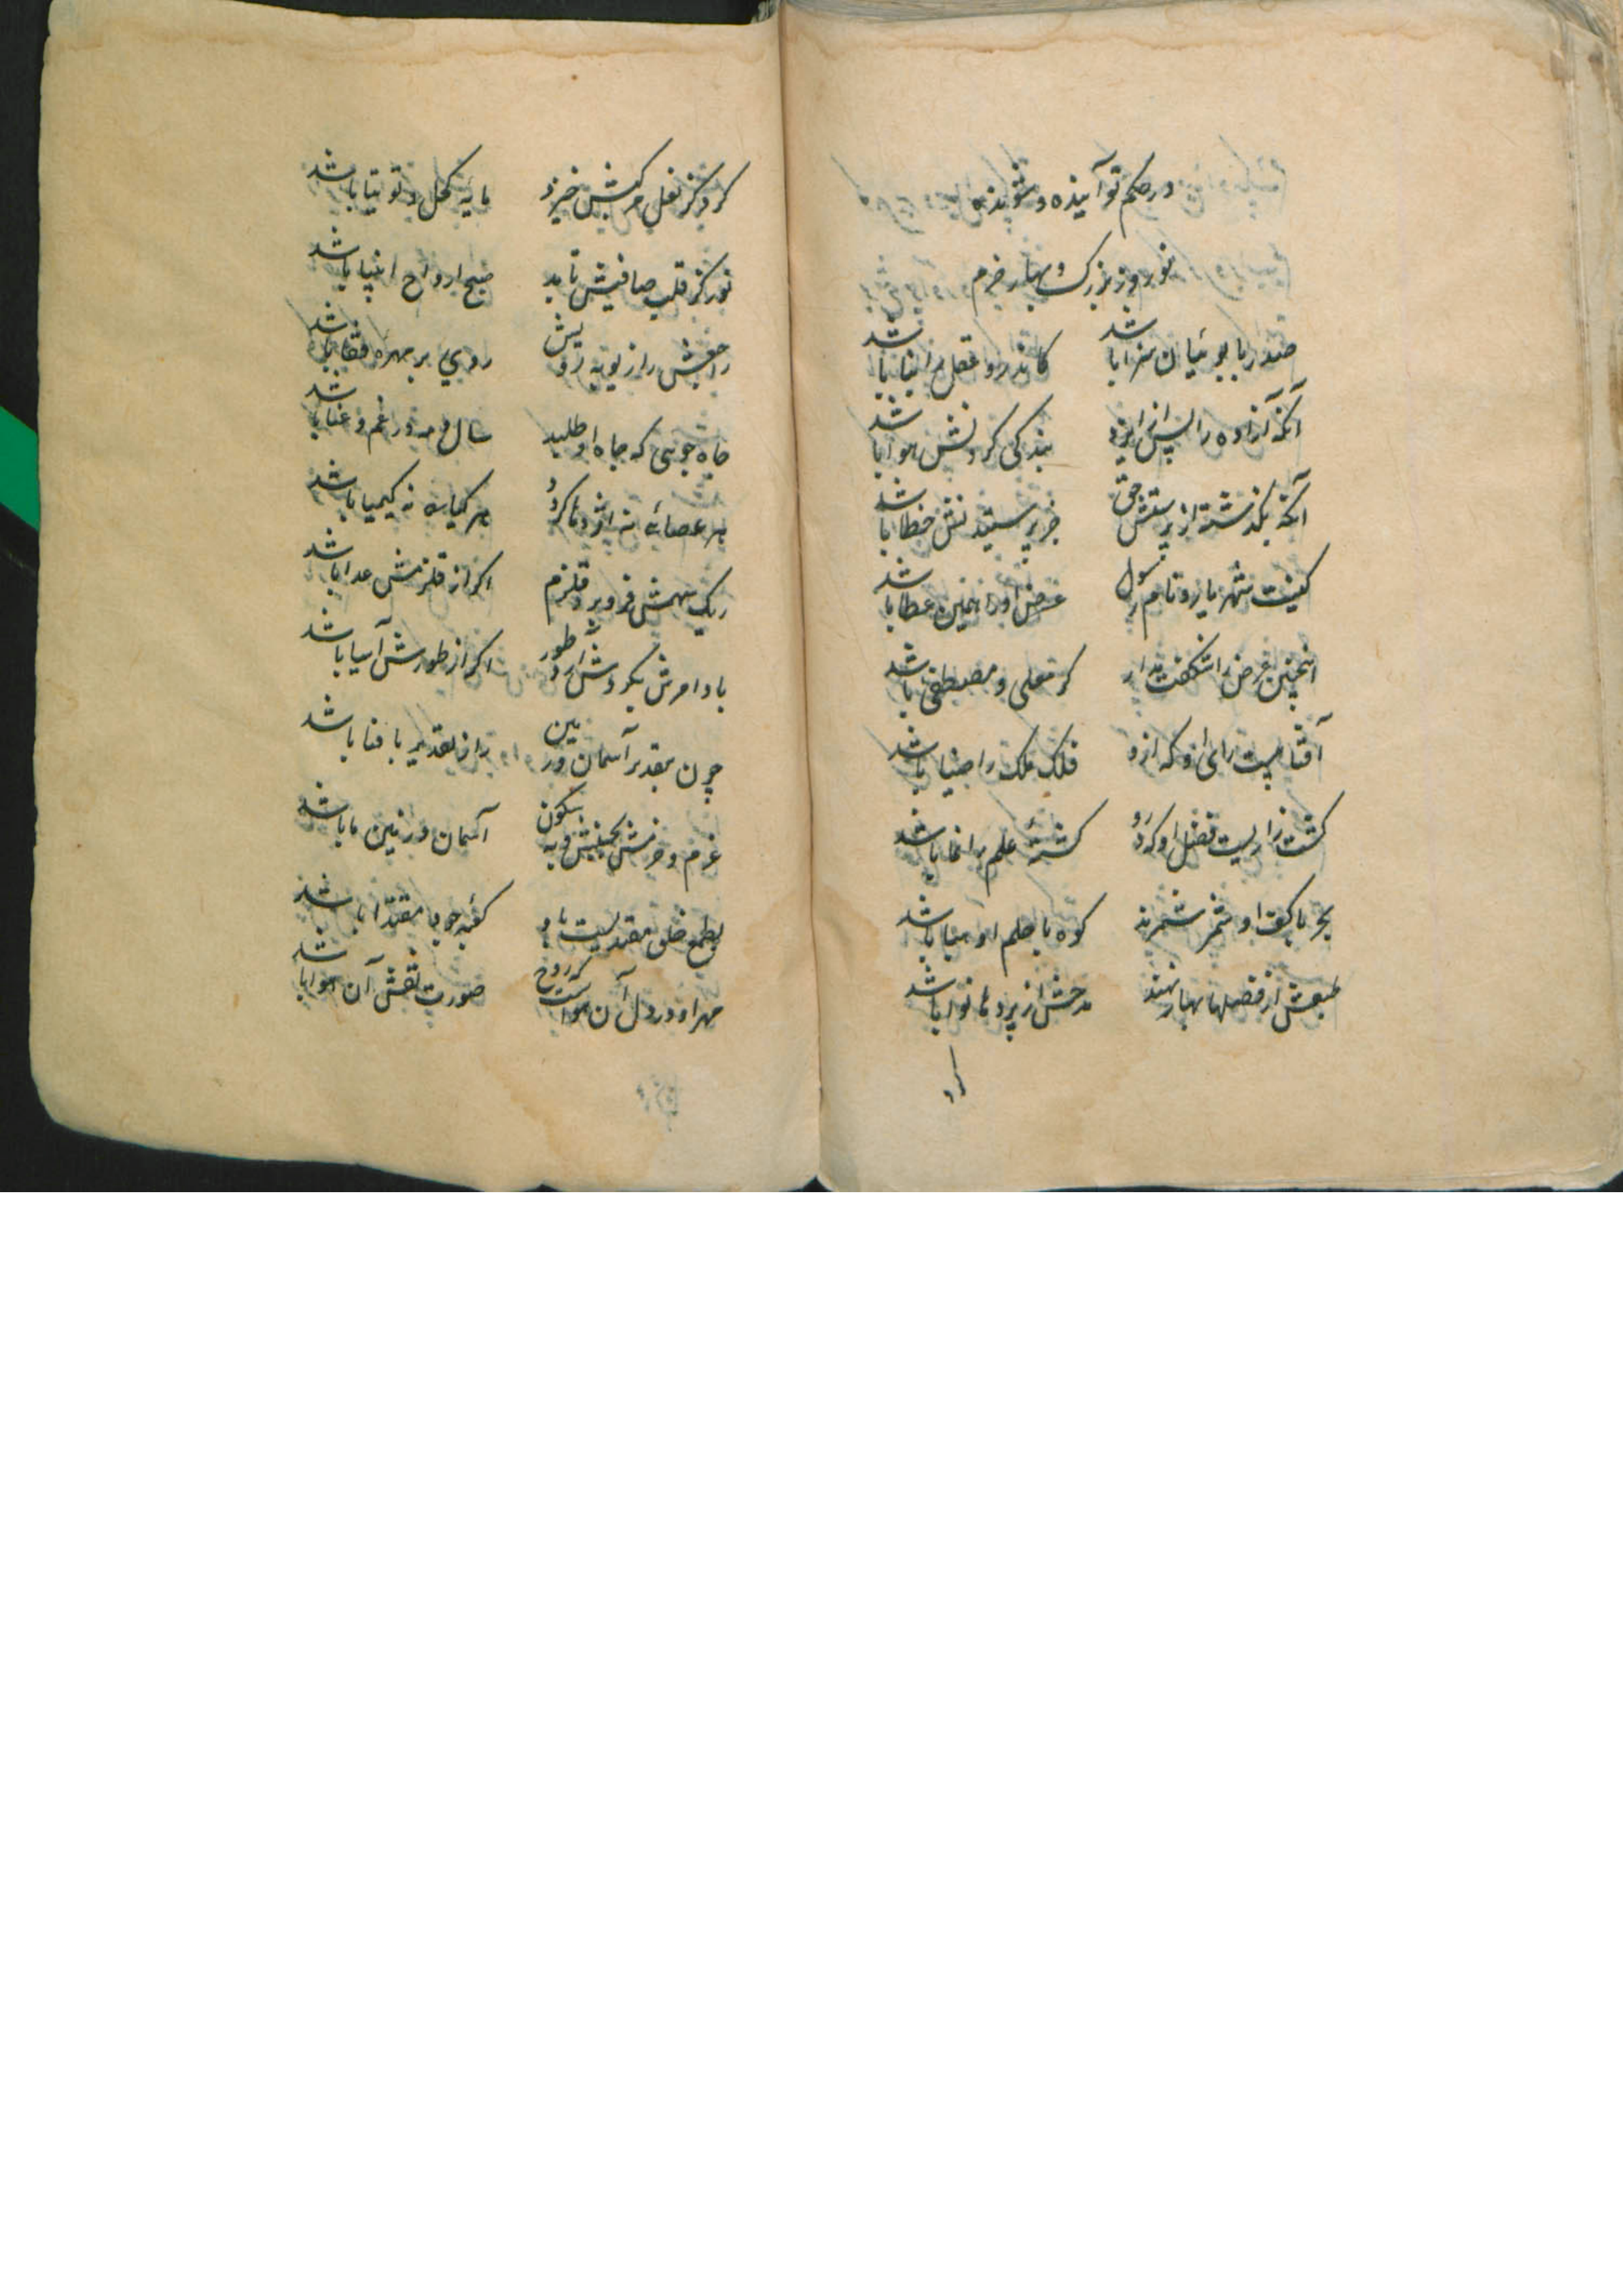 در حکم تو آینده و شونده
نوروز بزرگ و بهار خرم
صدر با بوئیان سزا باشد کاندرو عقل را باشد
آنکه آزاده را پس از ایزد بندگی کردنش هوا باشد
آنکه بگذشته از پرستش حق جز پرستیدنش خطا باشد
کنیت شهریار و نام رسول عرض او را همین عطا باشد
اینچنین عرض را شگفت مدار گر معلی و مصطفی باشد
آفتابیست رای او که ازو فلک ملک را ضیا باشد
کشت زاریست فضل او که درو کشتهٔ علم را نما باشد
بحر با کف او شمر شمرند کوه با حلم او هبا باشد
طبعش از فصلها بهار نهند مدحش از پردها نوا باشد
کرد
کرد کز نعل مرکبش خیزد مایهٔ کحل و توتیا باشد
نور کز قلب صافیش تابد صبح ارواح انبیا باشد
رایش را ز توبه رو روی بر مهره قفا باشد
جاه جوئی که جاه او طلبد سال و مه در غم و عنا باشد
هر عصائی نه اژدها گردد هر گیاه نه کیمیا باشد
ریگ سهمش فرو برد قلزم اگر از قلزمش عدا باشد
باد امرش بگردش آرد طور اگر از طورش آسیا باشد
چون بقدر آسمان بین راز تقدیر با فنا باشد
عزم و حزمش بجنبش و به سکون آسمان و زمین ما باشد
بطمع خلق مقتدیست باو کفیه جو با مقتدا باشد
مهر او در دل آن هواست که روح صورت نقش آن هوا باشد